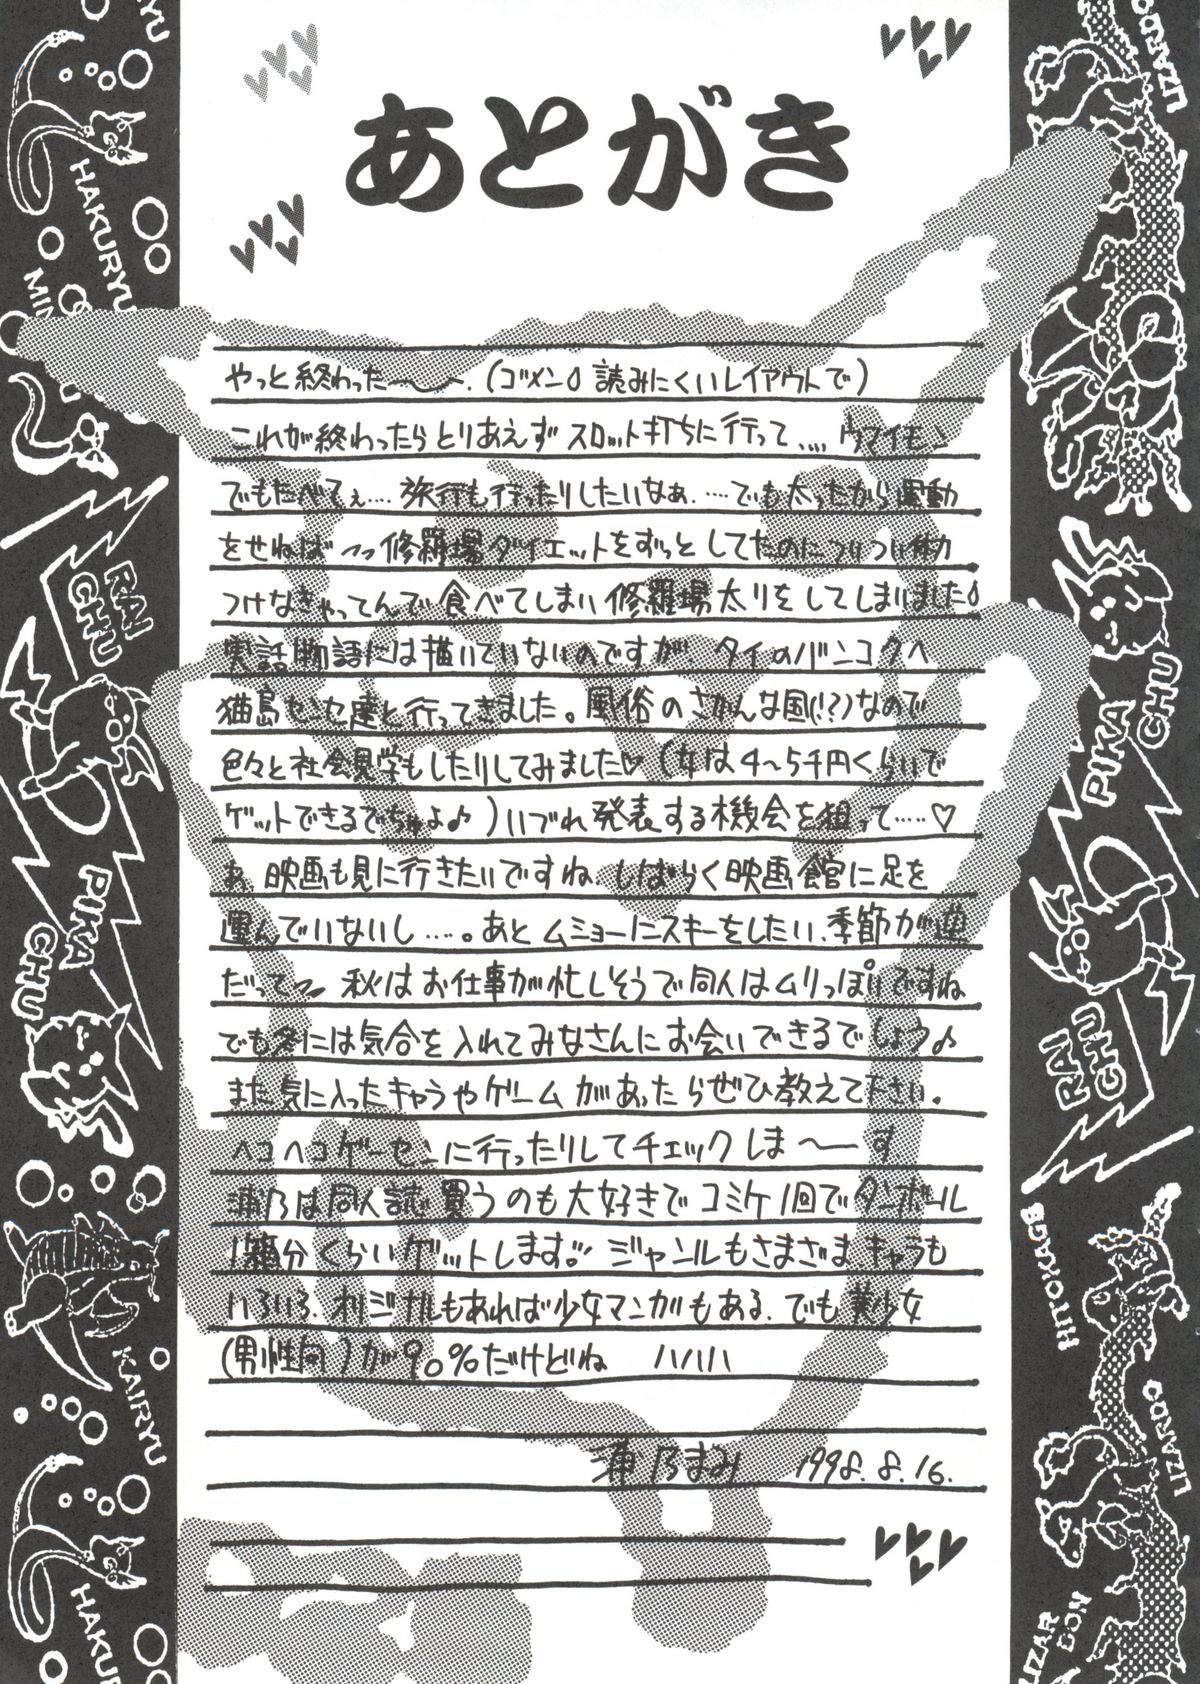 あとがき
やっと終わった〜〜.(ゴメン 読みにくいレイアウトで)
これが終わったらとりあえずスロット打ちに行って....ウマイモン
でもたべてぇ....旅行も行ったりしたいなぁ.....でも太ったから運動
をせねばっっ修羅場ダイエットをずっとしてたのについつい物
つけなきゃってんで食べてしまい修羅場太りをしてしまいました
実話物語には描いていないのですが、タイのバンコクへ
猫島センセ達と行ってきました。風俗のさかんな国(!?)なので
色々と社会見学もしたりしてみました♡(女は4〜5千円くらいで
ゲットできるでちゅよ♪)いづれ発表する機会を狙って.....♡
あ、映画も見に行きたいですね、しばらく映画館に足を
運んでいないし.....。あとムショーにスキーをしたい、季節が逆
だってっ 秋はお仕事が忙しそうで同人はムリっぽいですね
でも冬には気合を入れてみなさんにお会いできるでしょう♪
また気に入ったキャラやゲームがあったらぜひ教えて下さい。
ヘコヘコゲーセンに行ったりしてチェックしま〜ーす
浦乃は同人誌買うのも大好きでコミケ1回でダンボール
1箱分くらいゲットします!! ジャンルもさまざまキャラも
いろいろ、オリジナルもあれば少女マンガもある、でも美少女
(男性向)が90%だけどね ハハハ
浦乃まみ 1998.8.16.
HAKURYU
RAI
CHU
PIKA
CHU
KAIRYU
HAKURYU
LIZARDO
PIKA
CHU
RAI
CHU
HITOKAGE
LIZARDO
LIZAR
DON